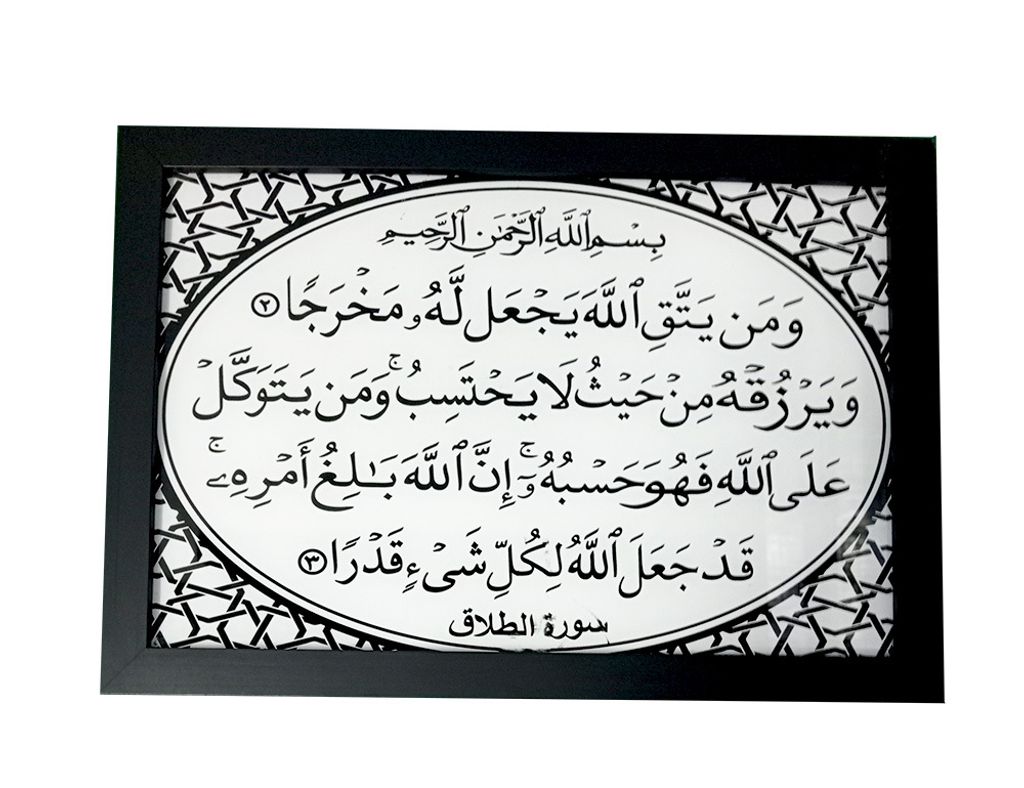 بِسْمِ ٱللَّهِ ٱلرَّحْمَٰنِ ٱلرَّحِيمِ
وَمَن يَتَّقِ ٱللَّهَ يَجْعَل لَّهُۥ مَخْرَجًا ٢
وَيَرْزُقْهُ مِنْ حَيْثُ لَا يَحْتَسِبُ ۚ وَمَن يَتَوَكَّلْ
عَلَى ٱللَّهِ فَهُوَ حَسْبُهُۥٓ ۚ إِنَّ ٱللَّهَ بَٰلِغُ أَمْرِهِۦ ۚ
قَدْ جَعَلَ ٱللَّهُ لِكُلِّ شَىْءٍ قَدْرًا ٣
سورة الطلاق